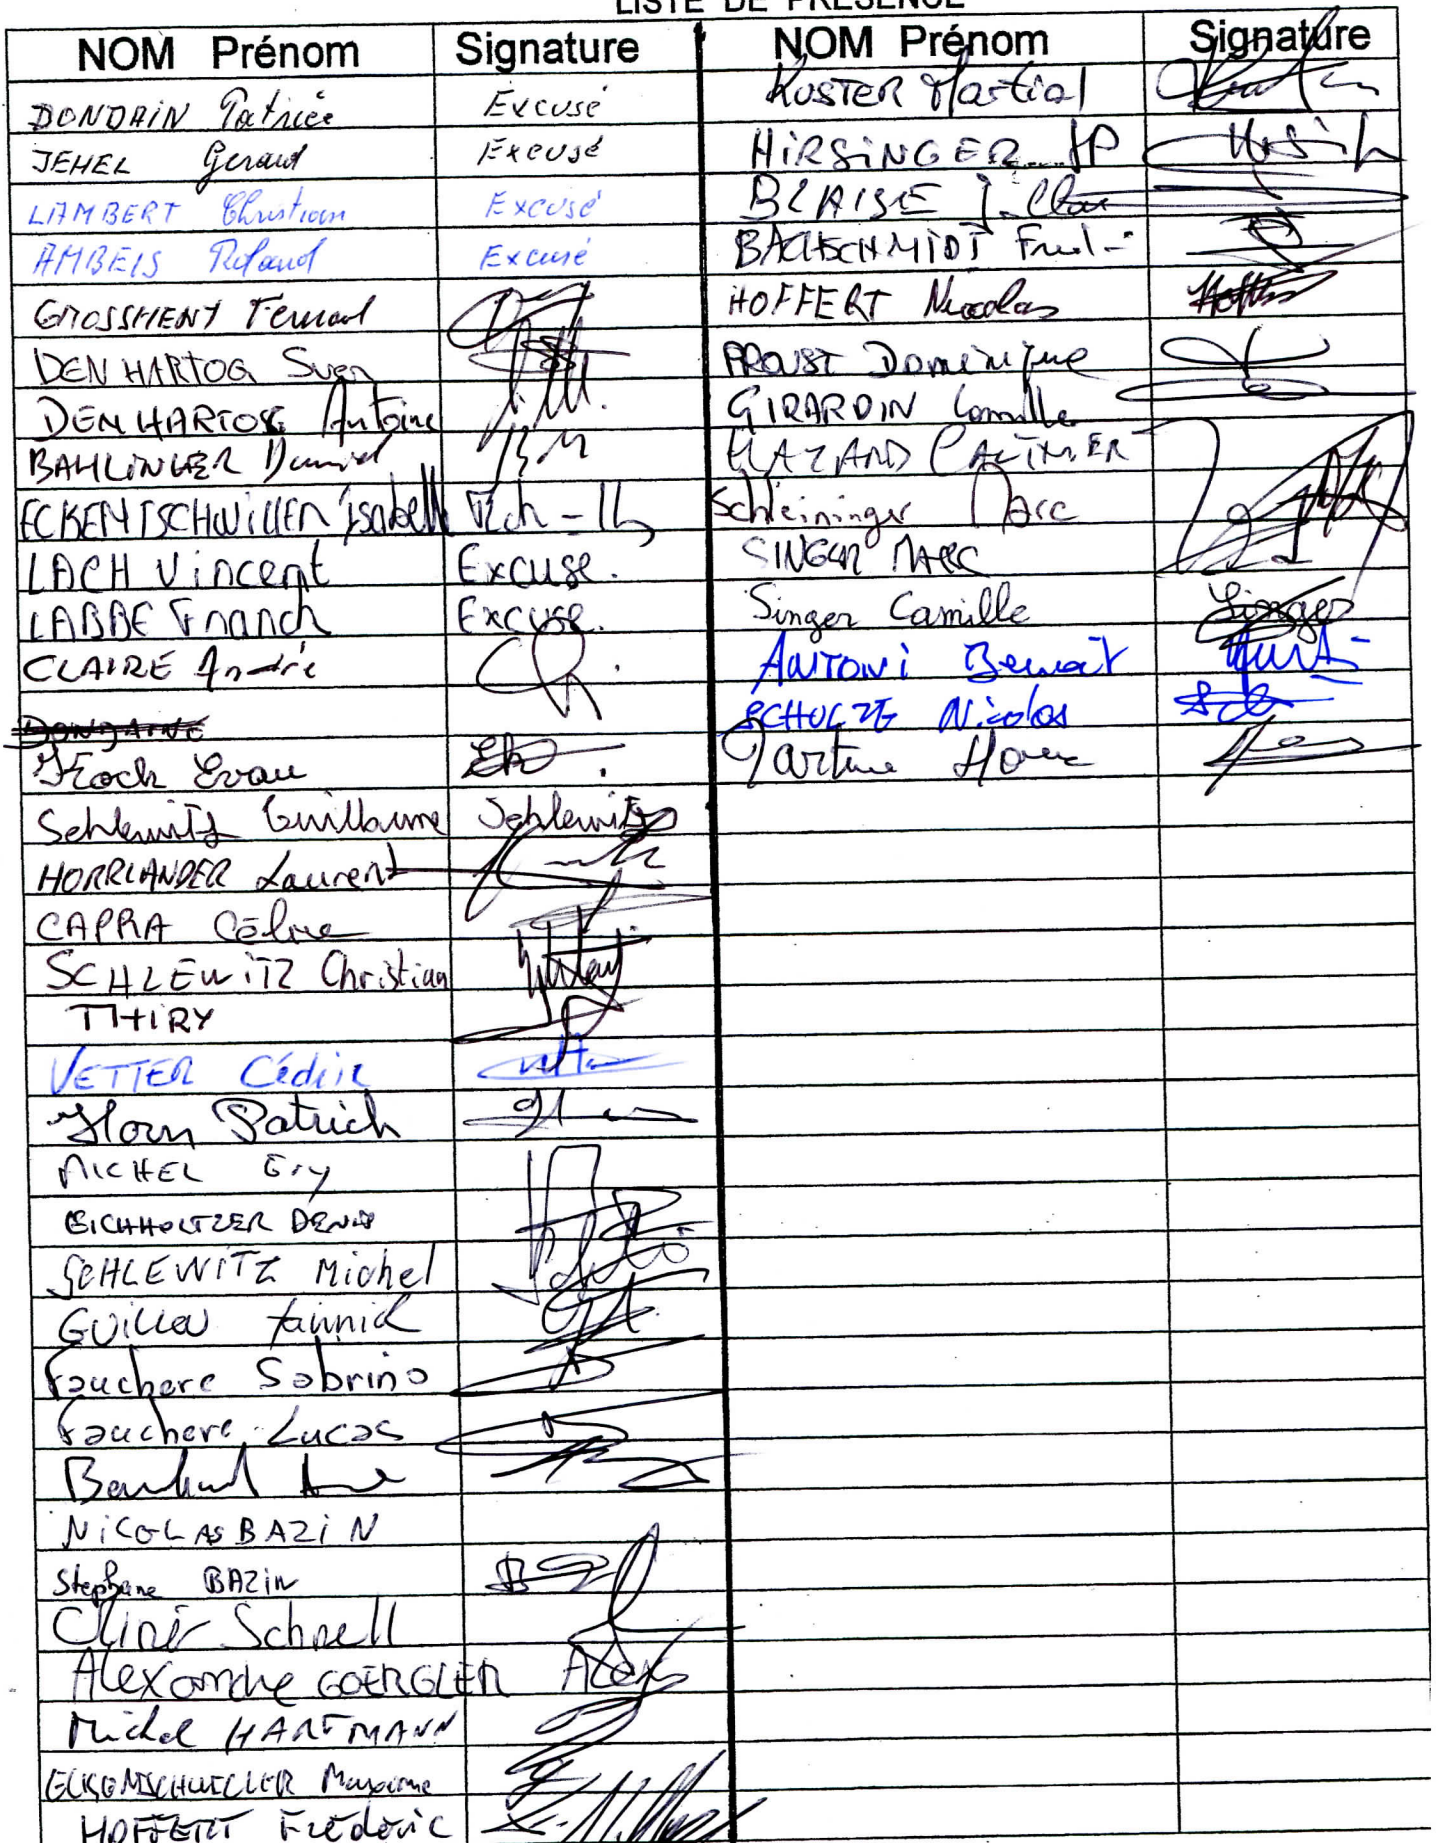 LISTE DE PRESENCE
NOM Prénom Signature
DONDAIN Patrice Excusé
JEHEL Gerard Excusé
LAMBERT Christian Excusé
AMBEIS Roland Excusé
GROSSHENY Fernand
DEN HARTOG Sven
DEN HARTOG Antoine
BAHLINGER Daniel
ECKENTSCHWILLER Isabell
LACH Vincent Excuse.
LABBE Franck Excuse.
CLAIRE André
Koch Evan
Schlewitz Guillaume Schlewitz
HORRLANDER Laurent
CAPRA Céline
SCHLEWITZ Christian
THIRY
VETTER Cédric
Horn Patrick
MICHEL Ery
EICHHOLTZER DENIS
SCHLEWITZ Michel
GUILLOU Yannick
Fauchere Sabrina
Fauchere Lucas
NICOLAS BAZIN
Stephane BAZIN
Schnell
Alexandre GOERGLER Alex
Michel HARTMANN
ECKENTSCHWILLER Maxime
HOFFERT Fréderic
NOM Prénom Signature
KUSTER Martial
HIRSINGER JP
BLAISE J. Clau
BACHSCHMIDT Fred
HOFFERT Nicolas
PROUST Dominique
GIRARDIN Camille
Schleininger Marc
SINGER MARC
Singer Camille Singer
ANTONI Benoit
SCHULZE Nicolas